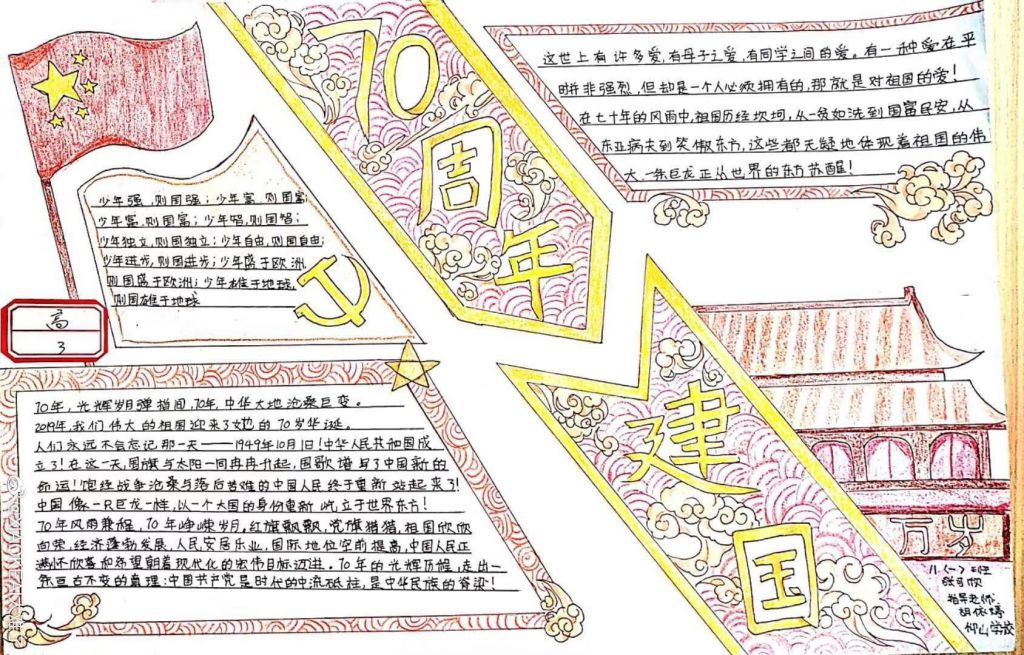 70
周
年
建
国
这世上有许多爱,有母子之爱,有同学之间的爱。有一种爱在平
时并非强烈,但却是一个人必须拥有的,那就是对祖国的爱!
在七十年的风雨中,祖国历经坎坷,从一贫如洗到国富民安,从
东亚病夫到笑傲东方,这些都无疑地体现着祖国的伟
大一条巨龙正从世界的东方苏醒!
少年强,则国强;少年富,则国富
少年富,则国富;少年智,则国智;
少年独立,则国独立;少年自由,则国自由;
少年进步,则国进步;少年盛于欧洲,
则国盛于欧洲;少年雄于地球,
则国雄于地球
高
3
70年,光辉岁月弹指间,70年,中华大地沧桑巨变。
2019年,我们伟大的祖国迎来了她的70岁华诞。
人们永远不会忘记那一天——1949年10月1日!中华人民共和国成
立了!在这一天,国旗与太阳一同冉冉升起,国歌谱写了中国新的
命运!饱经战争沧桑与落后苦难的中国人民终于重新站起来了!
中国像一只巨龙一样,以一个大国的身份重新屹立于世界东方!
70年风雨兼程,70年峥嵘岁月,红旗飘飘,党旗猎猎,祖国欣欣
向荣,经济蓬勃发展,人民安居乐业,国际地位空前提高,中国人民正
满怀欣喜和希望朝着现代化的宏伟目标迈进。70年的光辉历程,走出一
条亘古不变的真理:中国共产党是时代的中流砥柱,是中华民族的脊梁!
万岁
八(一)班
指导老师
仰山学校